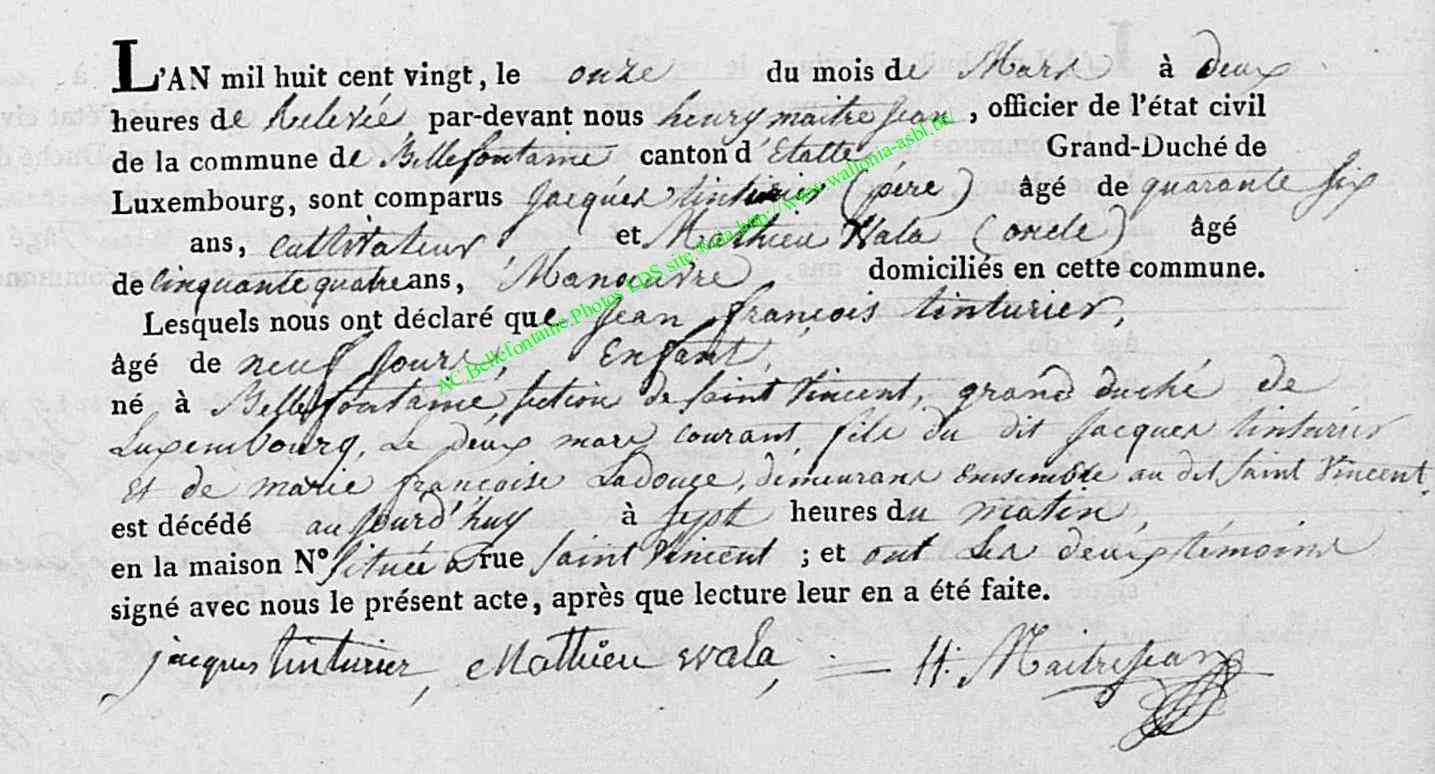 L'AN mil huit cent vingt, le onze du mois de Mars à deux
heures de Relevée par-devant nous henry maitrejean, officier de l'état civil
de la commune de Bellefontaine canton d'Etalle Grand-Duché de
Luxembourg, sont comparus Jacques tinturier (père) âgé de quarante six
ans, cultivateur et Mathieu Wala (oncle) âgé
de cinquante quatre ans, Manoeuvre domiciliés en cette commune.
Lesquels nous ont déclaré que Jean françois tinturier,
âgé de neuf Jours, Enfant,
né à Bellefontaine, section de saint Vincent, grand duché de
Luxembourg, Le deux mars courant, fils du dit Jacques tinturier
Et de marie françoise Ladouce, demeurans ensemble au dit saint Vincent,
est décédé aujourd'huy à sept heures du matin,
en la maison N° située a rue saint Vincent ; et ont Les deux témoins
signé avec nous le présent acte, après que lecture leur en a été faite.
jacques tinturier, Mathieu wala, H. Maitrejean
AC.Bellefontaine.Photos EDS site Wala http://www.wallonia-asbl.be